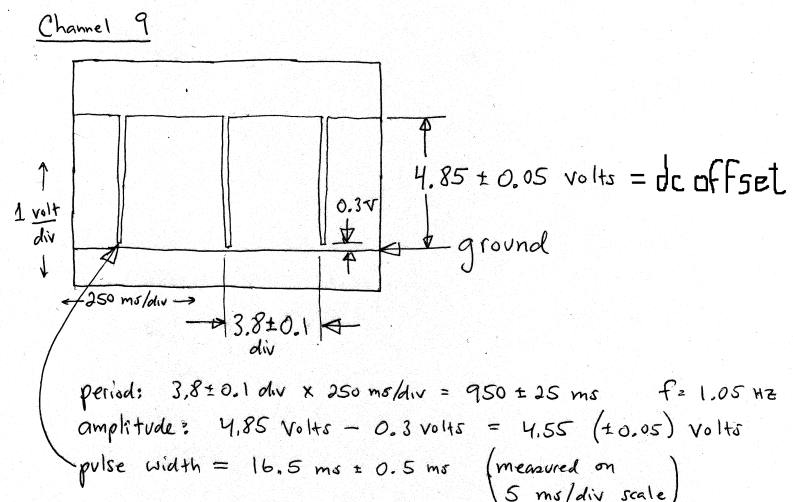 Channel 9
4.85 ± 0.05 volts = dc offset
0.3V
1 volt
div
ground
250 ms/div
3.8±0.1
div
period: 3.8±0.1 div x 250 ms/div = 950 ± 25 ms f= 1.05 Hz
amplitude: 4.85 Volts - 0.3 volts = 4.55 (±0.05) volts
pulse width = 16.5 ms ± 0.5 ms (measured on
5 ms/div scale)